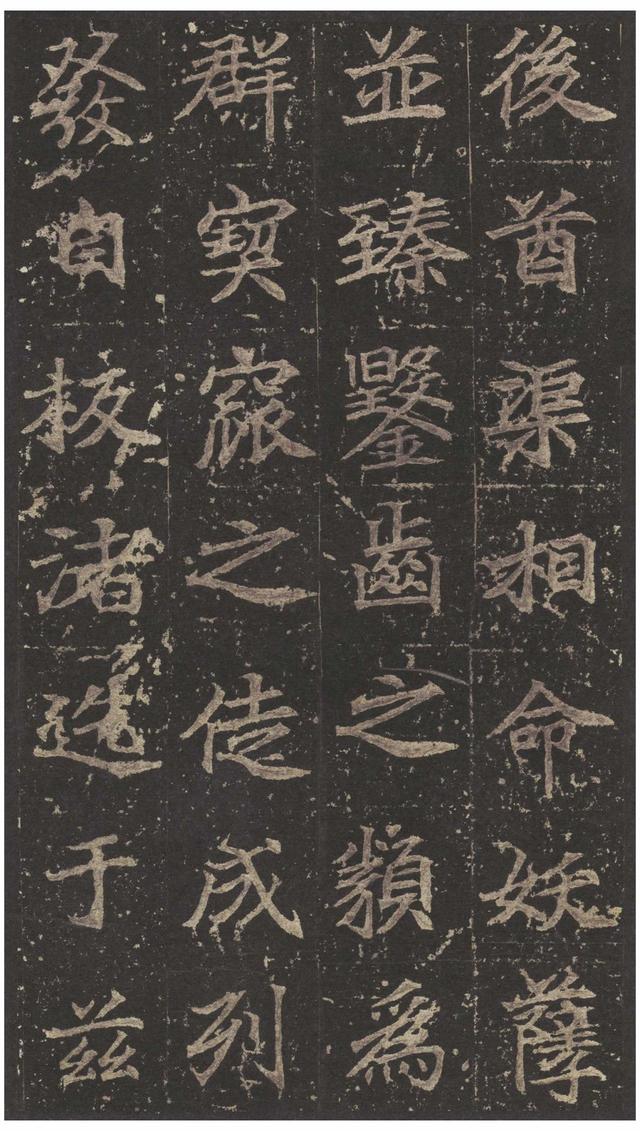 後酋渠相命妖孽
並臻鑿齒之類爲
群窫窳之徒成列
發自板渚于茲